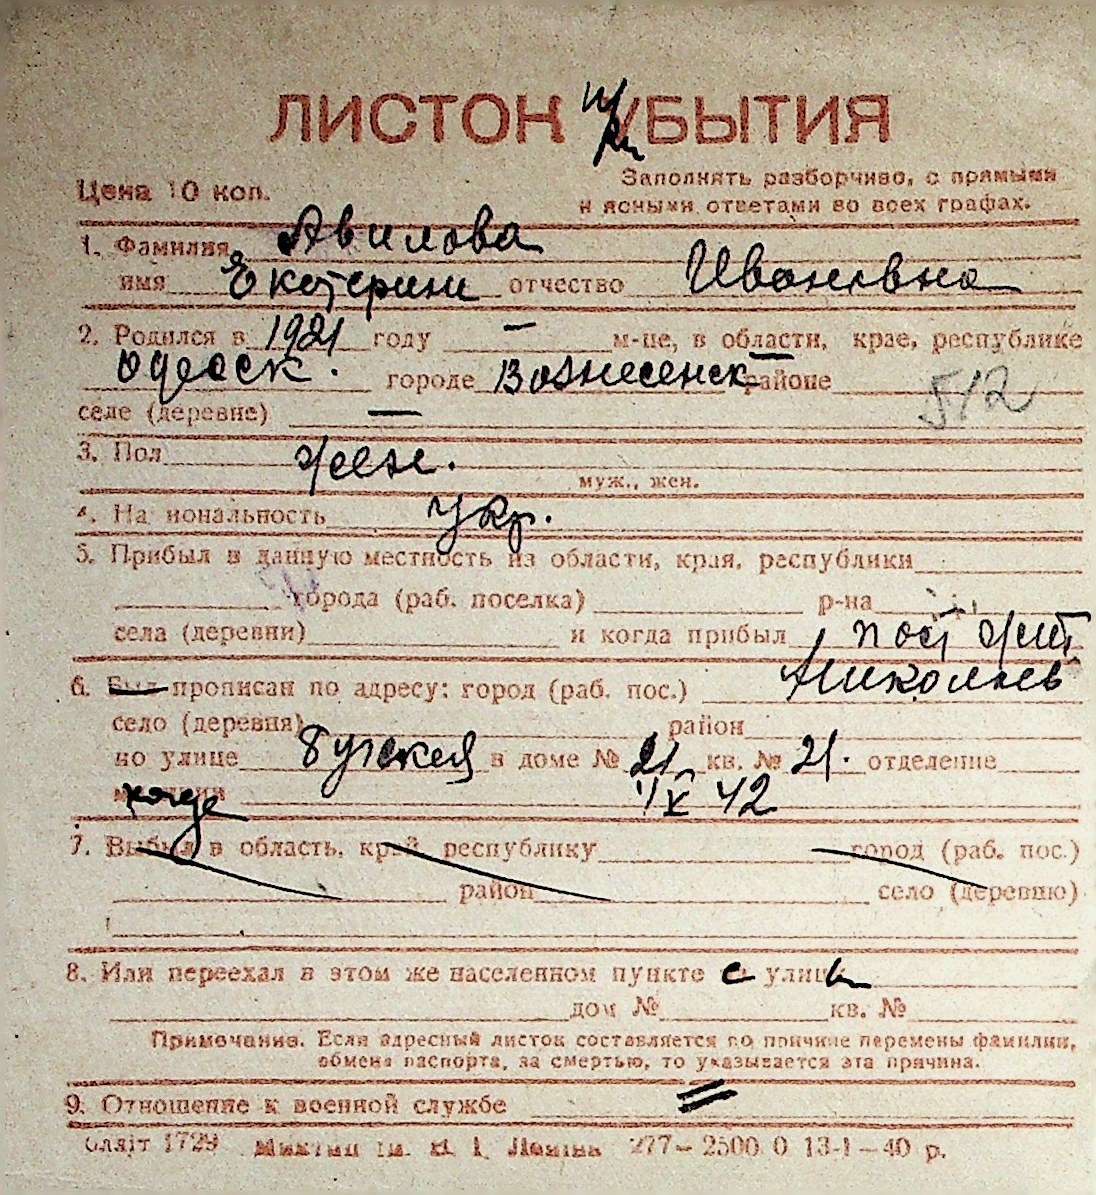 ЛИСТОК УБЫТИЯ
Цена 10 коп.
Заполнять разборчиво, с прямыми
и ясными ответами во всех графах.
1. Фамилия Авилова
имя Екатерина отчество Ивановна
2. Родился в 1921 году — м-це, в области, крае, республике
Одесск. городе Вознесенск районе
512
селе (деревне) —
3. Пол жен.
муж., жен.
4. Национальность Укр.
5. Прибыл в данную местность из области, края, республики
города (раб. поселка) р-на
села (деревни) и когда прибыл пост жит
6. Был прописан по адресу: город (раб. пос.) Николаев
село (деревня) район
по улице Бугская в доме № 21 кв. № 21. отделение
милиции когда 1/X 42
7. Выбыл в область, край, республику город (раб. пос.)
район село (деревню)
8. Или переехал в этом же населенном пункте с улицы
дом № кв. №
Примечание. Если адресный листок составляется по причине перемены фамилии,
обмена паспорта, за смертью, то указывается эта причина.
9. Отношение к военной службе =
1729 277—2500 0 13-1—40 р.